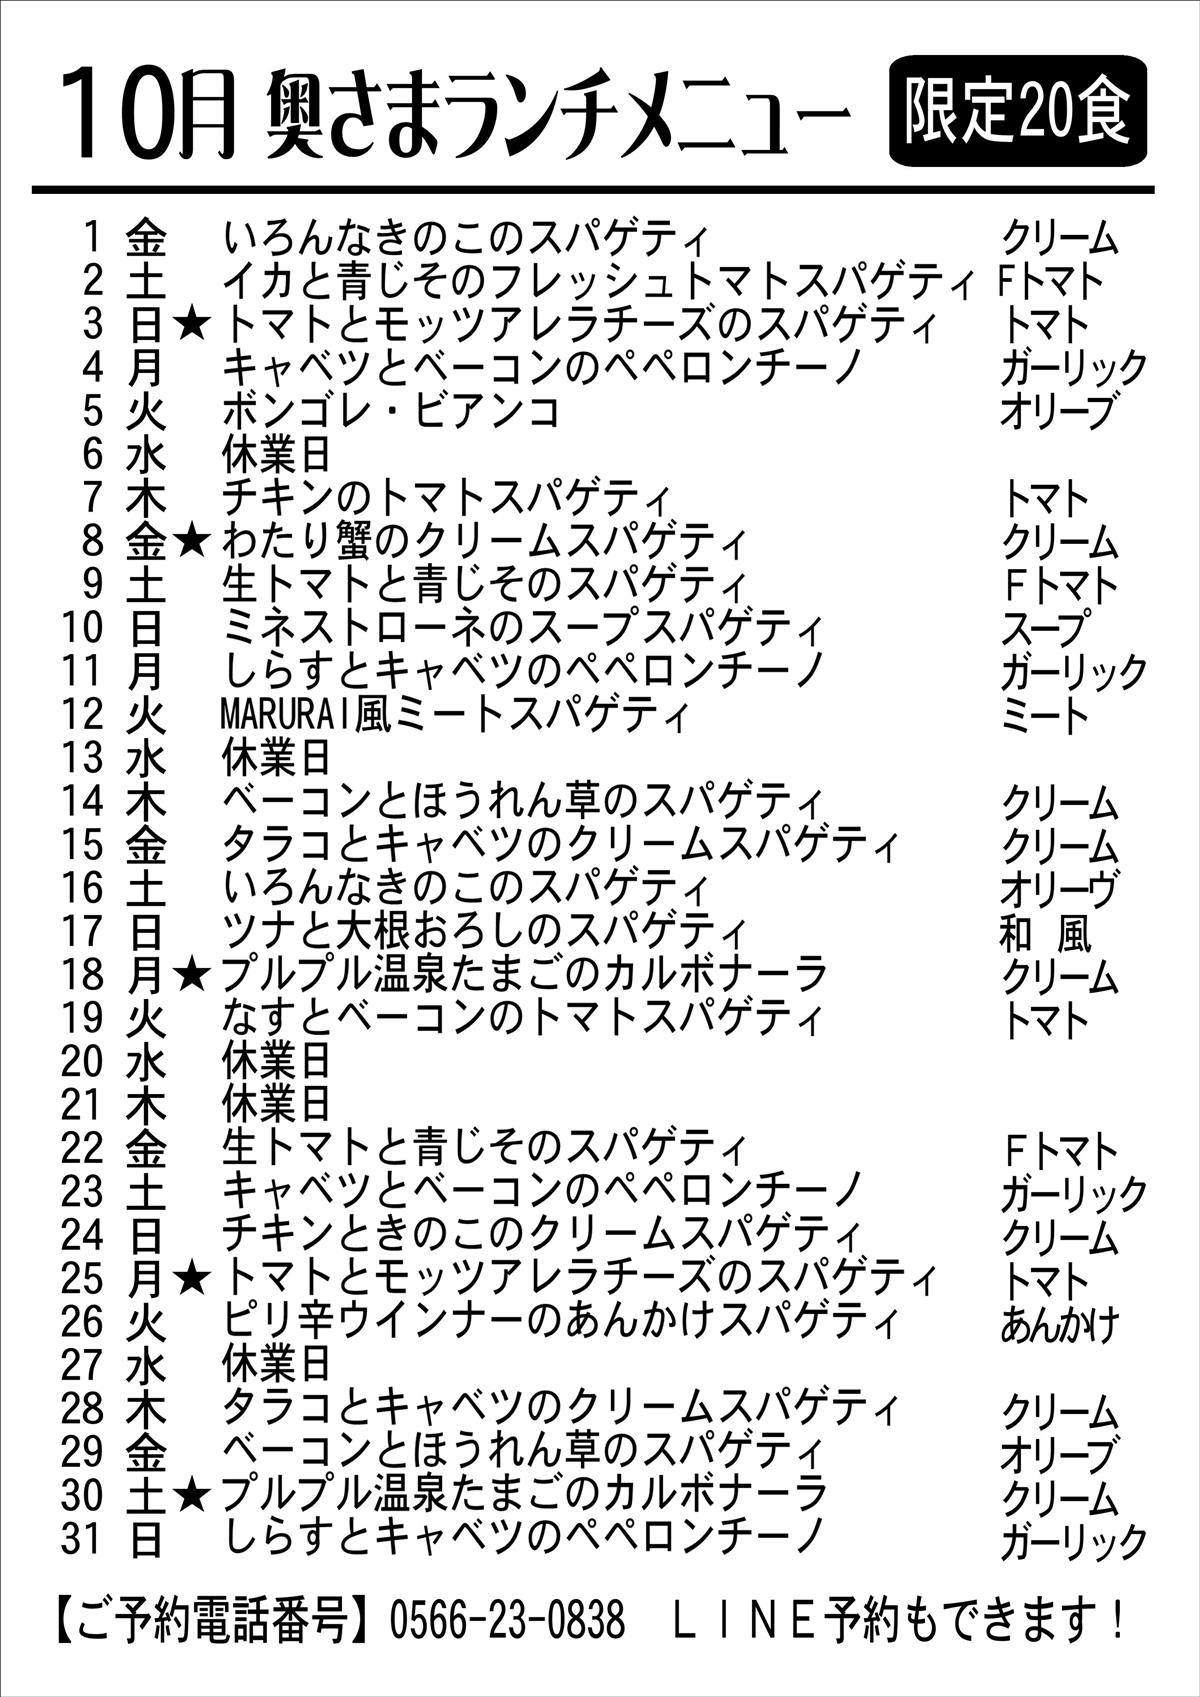 10月 奥さまランチメニュー 限定20食
1 金 いろんなきのこのスパゲティ クリーム
2 土 イカと青じそのフレッシュトマトスパゲティ Fトマト
3 日★トマトとモッツアレラチーズのスパゲティ トマト
4 月 キャベツとベーコンのペペロンチーノ ガーリック
5 火 ボンゴレ・ビアンコ オリーブ
6 水 休業日
7 木 チキンのトマトスパゲティ トマト
8 金★わたり蟹のクリームスパゲティ クリーム
9 土 生トマトと青じそのスパゲティ Fトマト
10 日 ミネストローネのスープスパゲティ スープ
11 月 しらすとキャベツのペペロンチーノ ガーリック
12 火 MARURAI風ミートスパゲティ ミート
13 水 休業日
14 木 ベーコンとほうれん草のスパゲティ クリーム
15 金 タラコとキャベツのクリームスパゲティ クリーム
16 土 いろんなきのこのスパゲティ オリーヴ
17 日 ツナと大根おろしのスパゲティ 和 風
18 月★プルプル温泉たまごのカルボナーラ クリーム
19 火 なすとベーコンのトマトスパゲティ トマト
20 水 休業日
21 木 休業日
22 金 生トマトと青じそのスパゲティ Fトマト
23 土 キャベツとベーコンのペペロンチーノ ガーリック
24 日 チキンときのこのクリームスパゲティ クリーム
25 月★トマトとモッツアレラチーズのスパゲティ トマト
26 火 ピリ辛ウインナーのあんかけスパゲティ あんかけ
27 水 休業日
28 木 タラコとキャベツのクリームスパゲティ クリーム
29 金 ベーコンとほうれん草のスパゲティ オリーブ
30 土★プルプル温泉たまごのカルボナーラ クリーム
31 日 しらすとキャベツのペペロンチーノ ガーリック
【ご予約電話番号】0566-23-0838 LINE予約もできます！